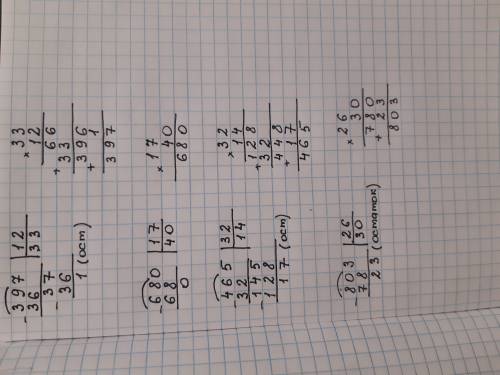 -397 | 12
36 | 33
-37
36
1 (ост)
×33
12
+66
33
+396
1
397
-680 | 17
68 | 40
0
×17
40
680
-465 | 32
32 | 14
-145
128
17 (ост)
×32
14
+128
32
+448
17
465
-803 | 26
78 | 30
23 (остаток)
×26
30
+780
23
803